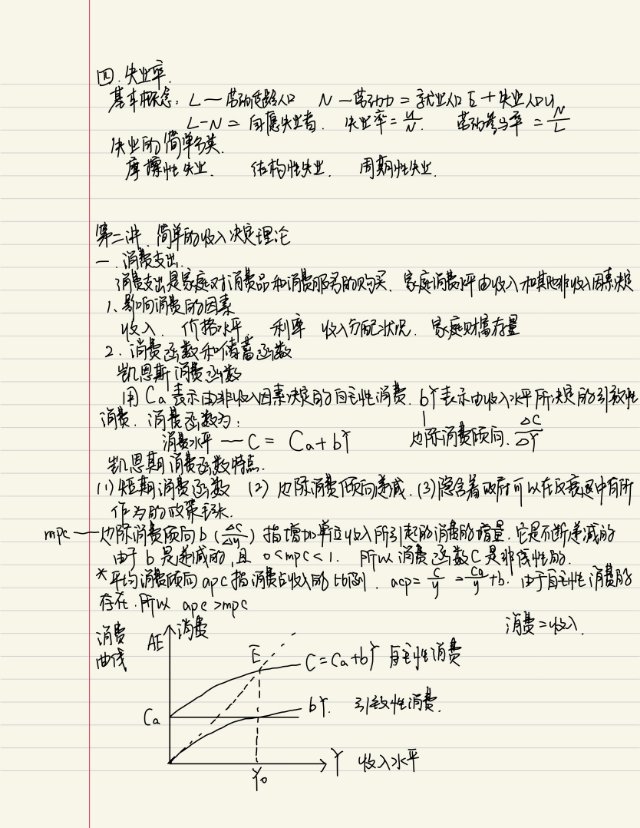 四.失业率.
基本概念: L—劳动适龄人口 N—劳动力=就业人口E+失业人口U
L-N=自愿失业者. 失业率=U/N. 劳动参与率=N/L
失业的简单分类
摩擦性失业. 结构性失业. 周期性失业.
第二讲.简单的收入决定理论
一.消费支出.
消费支出是家庭对消费品和消费服务的购买. 家庭消费水平由收入和其他非收入因素决定
1、影响消费的因素
收入. 价格水平 利率 收入分配状况. 家庭财富存量
2.消费函数和储蓄函数
凯恩斯消费函数
用Ca表示由非收入因素决定的自主性消费. bY表示由收入水平所决定的引致性
消费. 消费函数为:
消费水平—C=Ca+bY 边际消费倾向.△C/△Y
凯恩斯消费函数特点.
(1)短期消费函数 (2)边际消费倾向递减.(3)隐含着政府可以在反衰退中有所
作为的政策主张.
mpc—边际消费倾向b(△C/△Y)指增加单位收入所引起的消费的增量.它是不断递减的
由于b是递减的,且0<mpc<1. 所以消费函数C是非线性的.
*平均消费倾向apc指消费占收入的比例. acp=C/Y=Ca/Y+b. 由于自主性消费的
存在.所以apc>mpc
消费=收入.
消费曲线
AE 消费
E
C=Ca+bY 自主性消费
Ca
bY. 引致性消费.
Y 收入水平
Y0